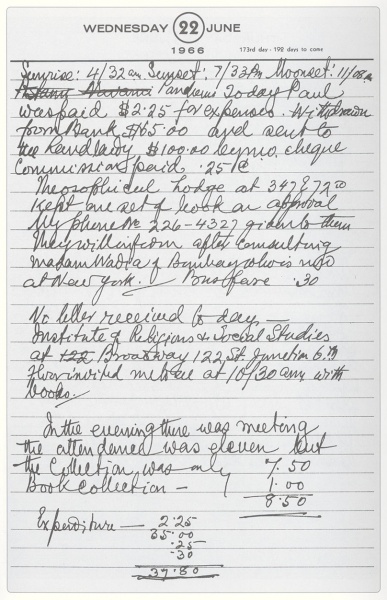 WEDNESDAY 22 JUNE
1966 173rd day - 192 days to come
Sunrise: 4/32 am. Sunset: 7/33 Pm Moonset: 11/08
Pandami Today Paul
was paid $2.25 for expenses. Withdrawn
from Bank $65.00 and sent to
the Landlady $100.00 by mo. cheque
Commission paid .25/c
Theosophical Lodge at 347 E 72 St
Kept one set of book on approval
My phone No 226-4327 given to them
They will inform after consulting
madam Wadia of Bombay who is now
at New york. Bus fare .30
No letter received to day.—
Institute of Religions & Social Studies
at 122 Broadway 122, St. Junction 6 th
floor invited me to see at 10/30 am with
books.
In the evening there was meeting
the attendence was eleven but
the Collection was only 7.50
Book collection — 1.00
8.50
Expenditure — 2.25
35.00
.25
.30
37.80